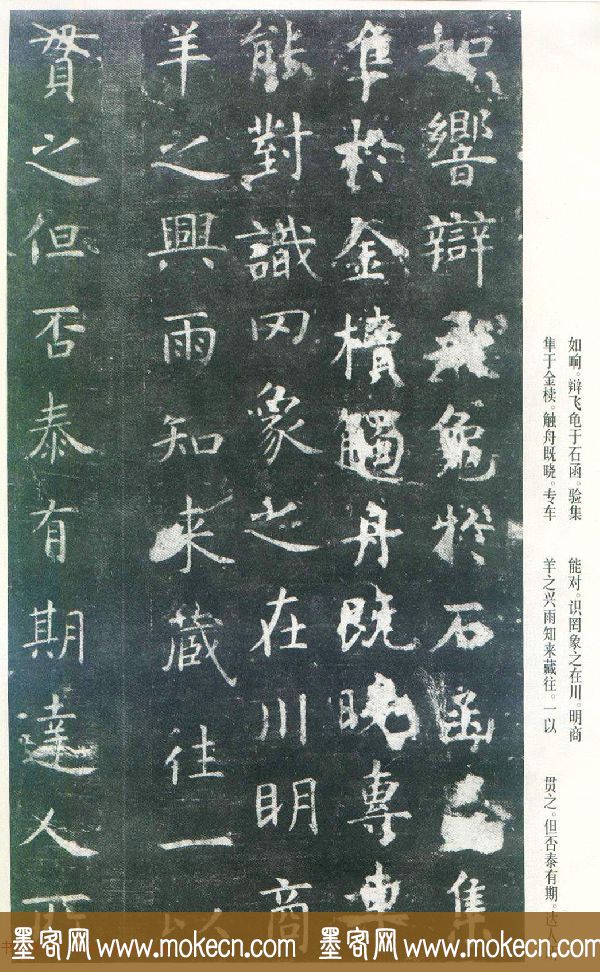 如响。辩飞龟于石函。验集
隼于金椟。触舟既晓。专车
能对。识罔象之在川。明商
羊之兴雨知来藏往。一以
贯之。但否泰有期。达人
如響辯飛龜於石函集
隼於金櫝觸舟既曉專車
能對識罔象之在川明商
羊之興雨知来蔵往一以
貫之但否泰有期達人所
墨客网 www.mokecn.com 墨客网 www.mokecn.com